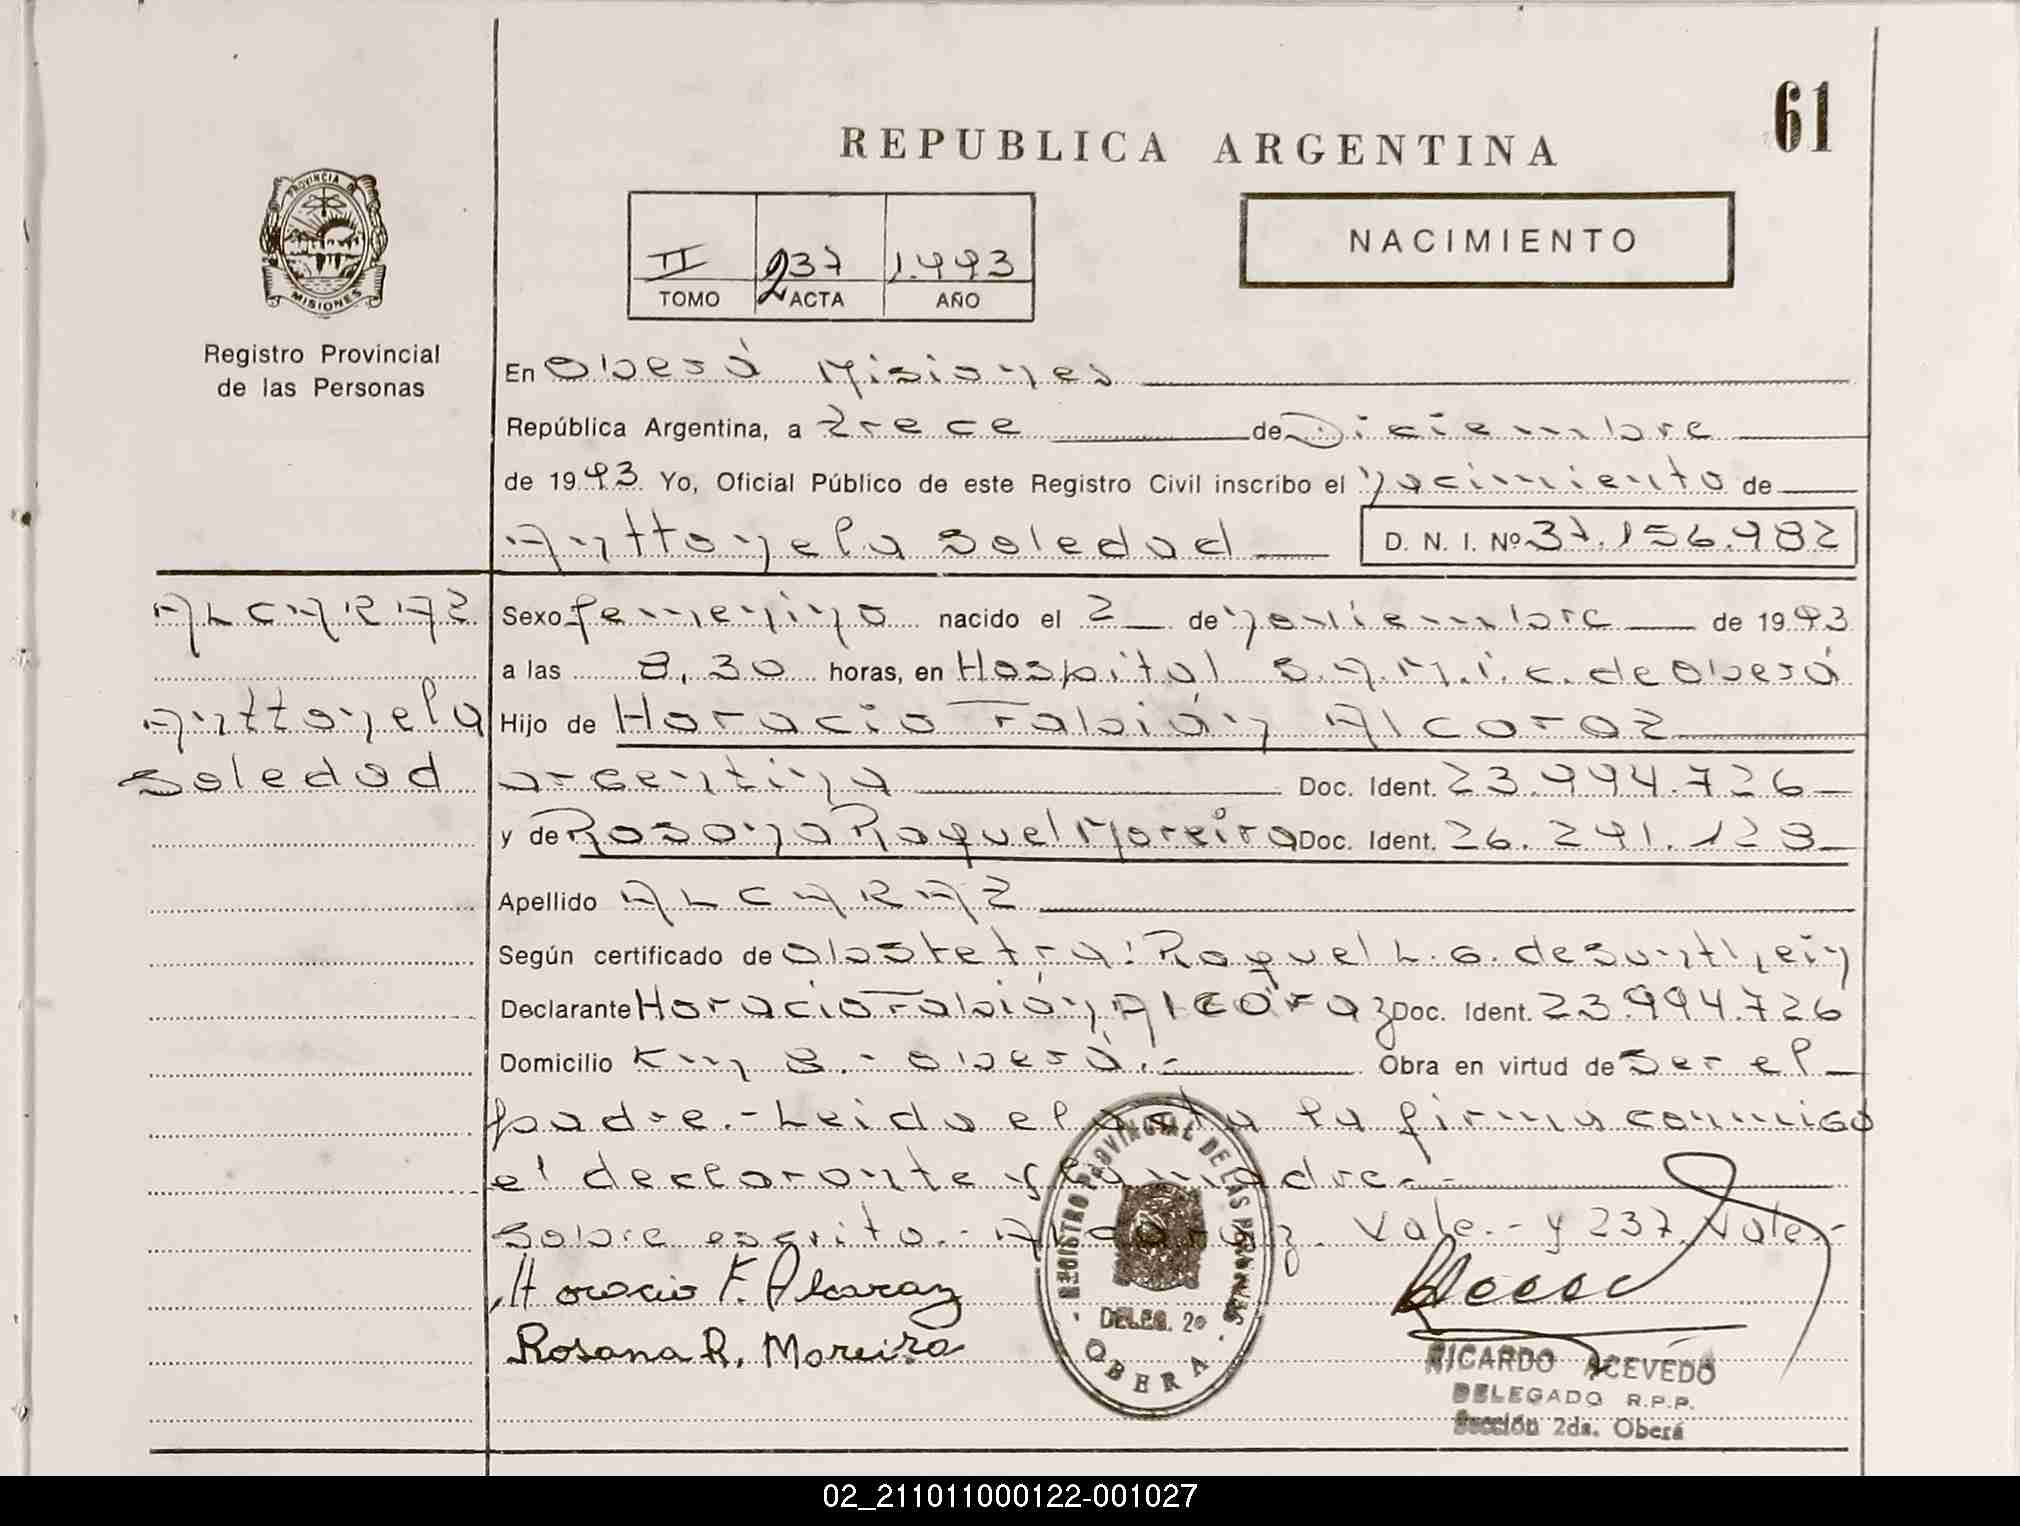 61
REPUBLICA ARGENTINA
PROVINCIA DE
MISIONES
Registro Provincial
de las Personas
II 237 1.993
TOMO ACTA AÑO
NACIMIENTO
En Oberá Misiones
República Argentina, a Trece de Diciembre
de 1993 Yo, Oficial Público de este Registro Civil inscribo el nacimiento de
Anttonela Soledad D. N. I. Nº 37.156.982
ALCARAZ
Anttonela
Soledad
Sexo femenino nacido el 2 de noviembre de 1993
a las 8,30 horas, en Hospital S.A.M.i.c. de Oberá
Hijo de Horacio Fabián Alcaraz
argentina Doc. Ident. 23.994.726
y de Rosana Raquel Moreira Doc. Ident. 26.241.128
Apellido ALCARAZ
Según certificado de obstetra: Raquel L. G. de
Declarante Horacio Fabián Alcaraz Doc. Ident. 23.994.726
Domicilio Km 8.- Oberá.- Obra en virtud de Ser el
padre.- Leida el acta la firma conmigo
el declarante y la madre.-
Sobre escrito.- Alcaraz. Vale.- y 237. Vale.-
Horacio F. Alcaraz
Rosana R. Moreira
REGISTRO PROVINCIAL DE LAS PERSONAS
DELEG. 2º
OBERA
RICARDO ACEVEDO
DELEGADO R.P.P.
Sección 2da. Oberá
02_211011000122-001027